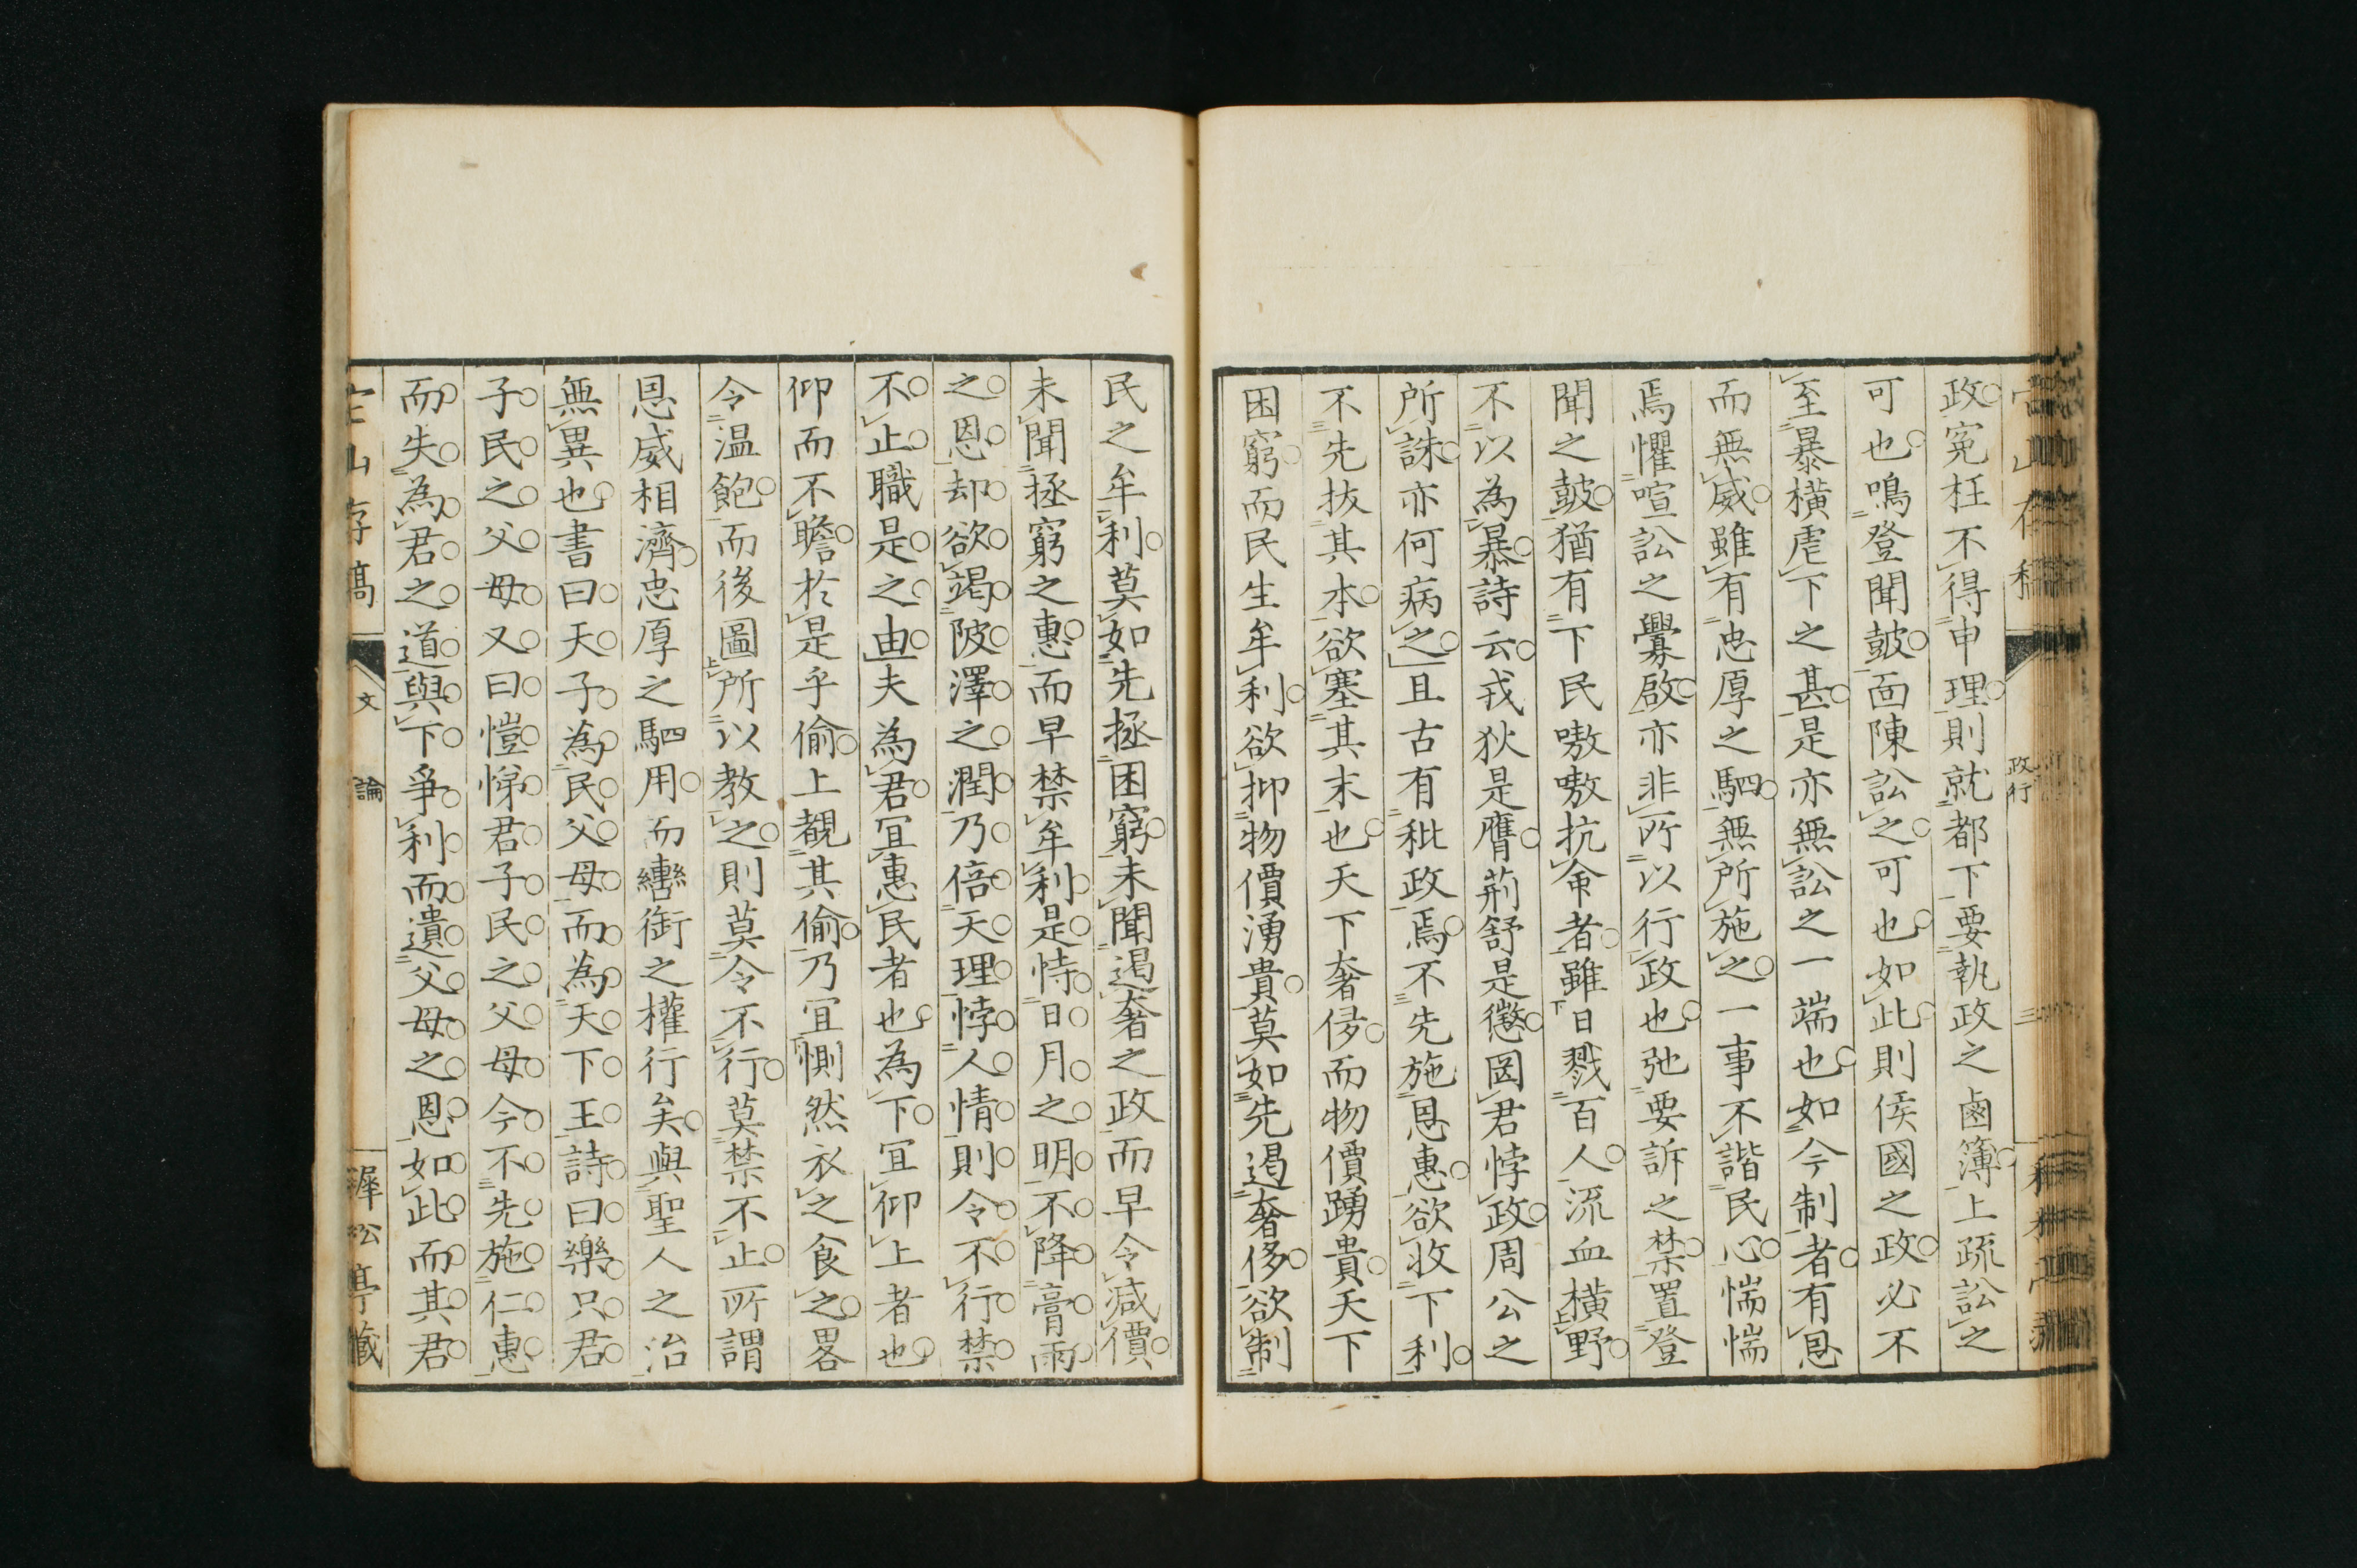 政冤枉不得申理則就都下要執政之鹵簿上疏訟之
可也鳴登聞鼓面陳訟之可也如此則侯國之政必不
至暴橫虐下之甚是亦無訟之一端也如今制者有恩
而無威雖有忠厚之駟無所施之一事不諧民心惴惴
焉懼喧訟之釁啟亦非所以行政也弛要訴之禁置登
聞之鼓猶有下民嗷嗷抗命者雖日戮百人流血橫野
不以為暴詩云戎狄是膺荊舒是懲図君悖政周公之
所誅亦何病之且古有秕政焉不先施恩惠欲收下利
不先拔其本欲塞其末也天下奢侈而物價踴貴天下
困窮而民生牟利欲抑物價湧貴莫如先遏奢侈欲制
民之牟利莫如先拯困窮未聞遏奢之政而早令減價
未聞拯窮之惠而早禁牟利是恃日月之明不降膏雨
之恩却欲竭陂澤之潤乃倍天理悖人情則令不行禁
不止職是之由夫為君宜惠民者也為下宜仰上者也
仰而不瞻於是乎偷上覩其偷乃宜惻然衣之食之畧
令温飽而後圖所以教之則莫令不行莫禁不止所謂
恩威相濟忠厚之駟用而轡銜之權行矣與聖人之治
無異也書曰天子為民父母而為天下王詩曰樂只君
子民之父母又曰愷悌君子民之父母今不先施仁惠
而失為君之道與下爭利而遺父母之恩如此而其君
文 論
政行
三